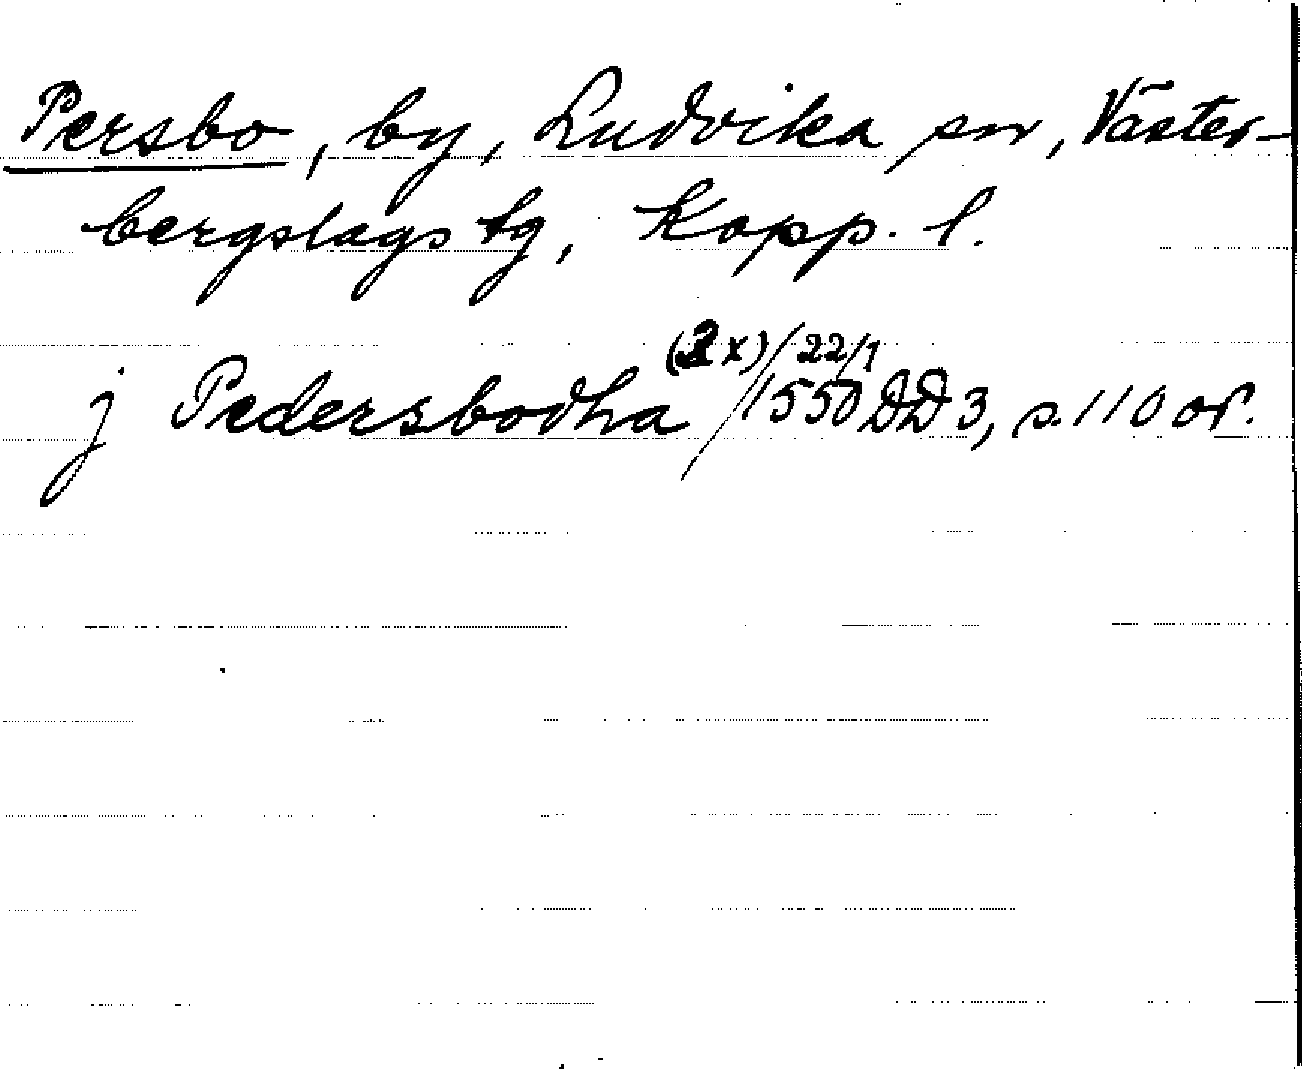 Persbo, by, Ludvika sn, Väster-
bergslags tg, Kopp. l.
j Pedersbodha (2x) / 22/1 1550 DD 3, s. 110 or.